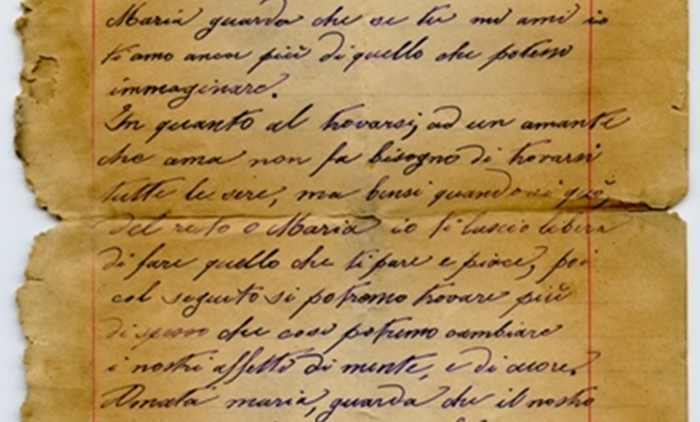 Maria guarda che se tu mi ami io
ti amo ancor più di quello che potessi
immaginare.
In quanto al trovarsi, ad un amante
che ama non fa bisogno di trovarsi
tutte le sere, ma bensi quando si può,
del resto o Maria io ti lascio libera
di fare quello che ti pare e piace, poi
col seguito si potremo trovare più
di spesso che cosi potremo cambiare
i nostri affetti di mente, e di cuore.
Amata maria, guarda che il nostro